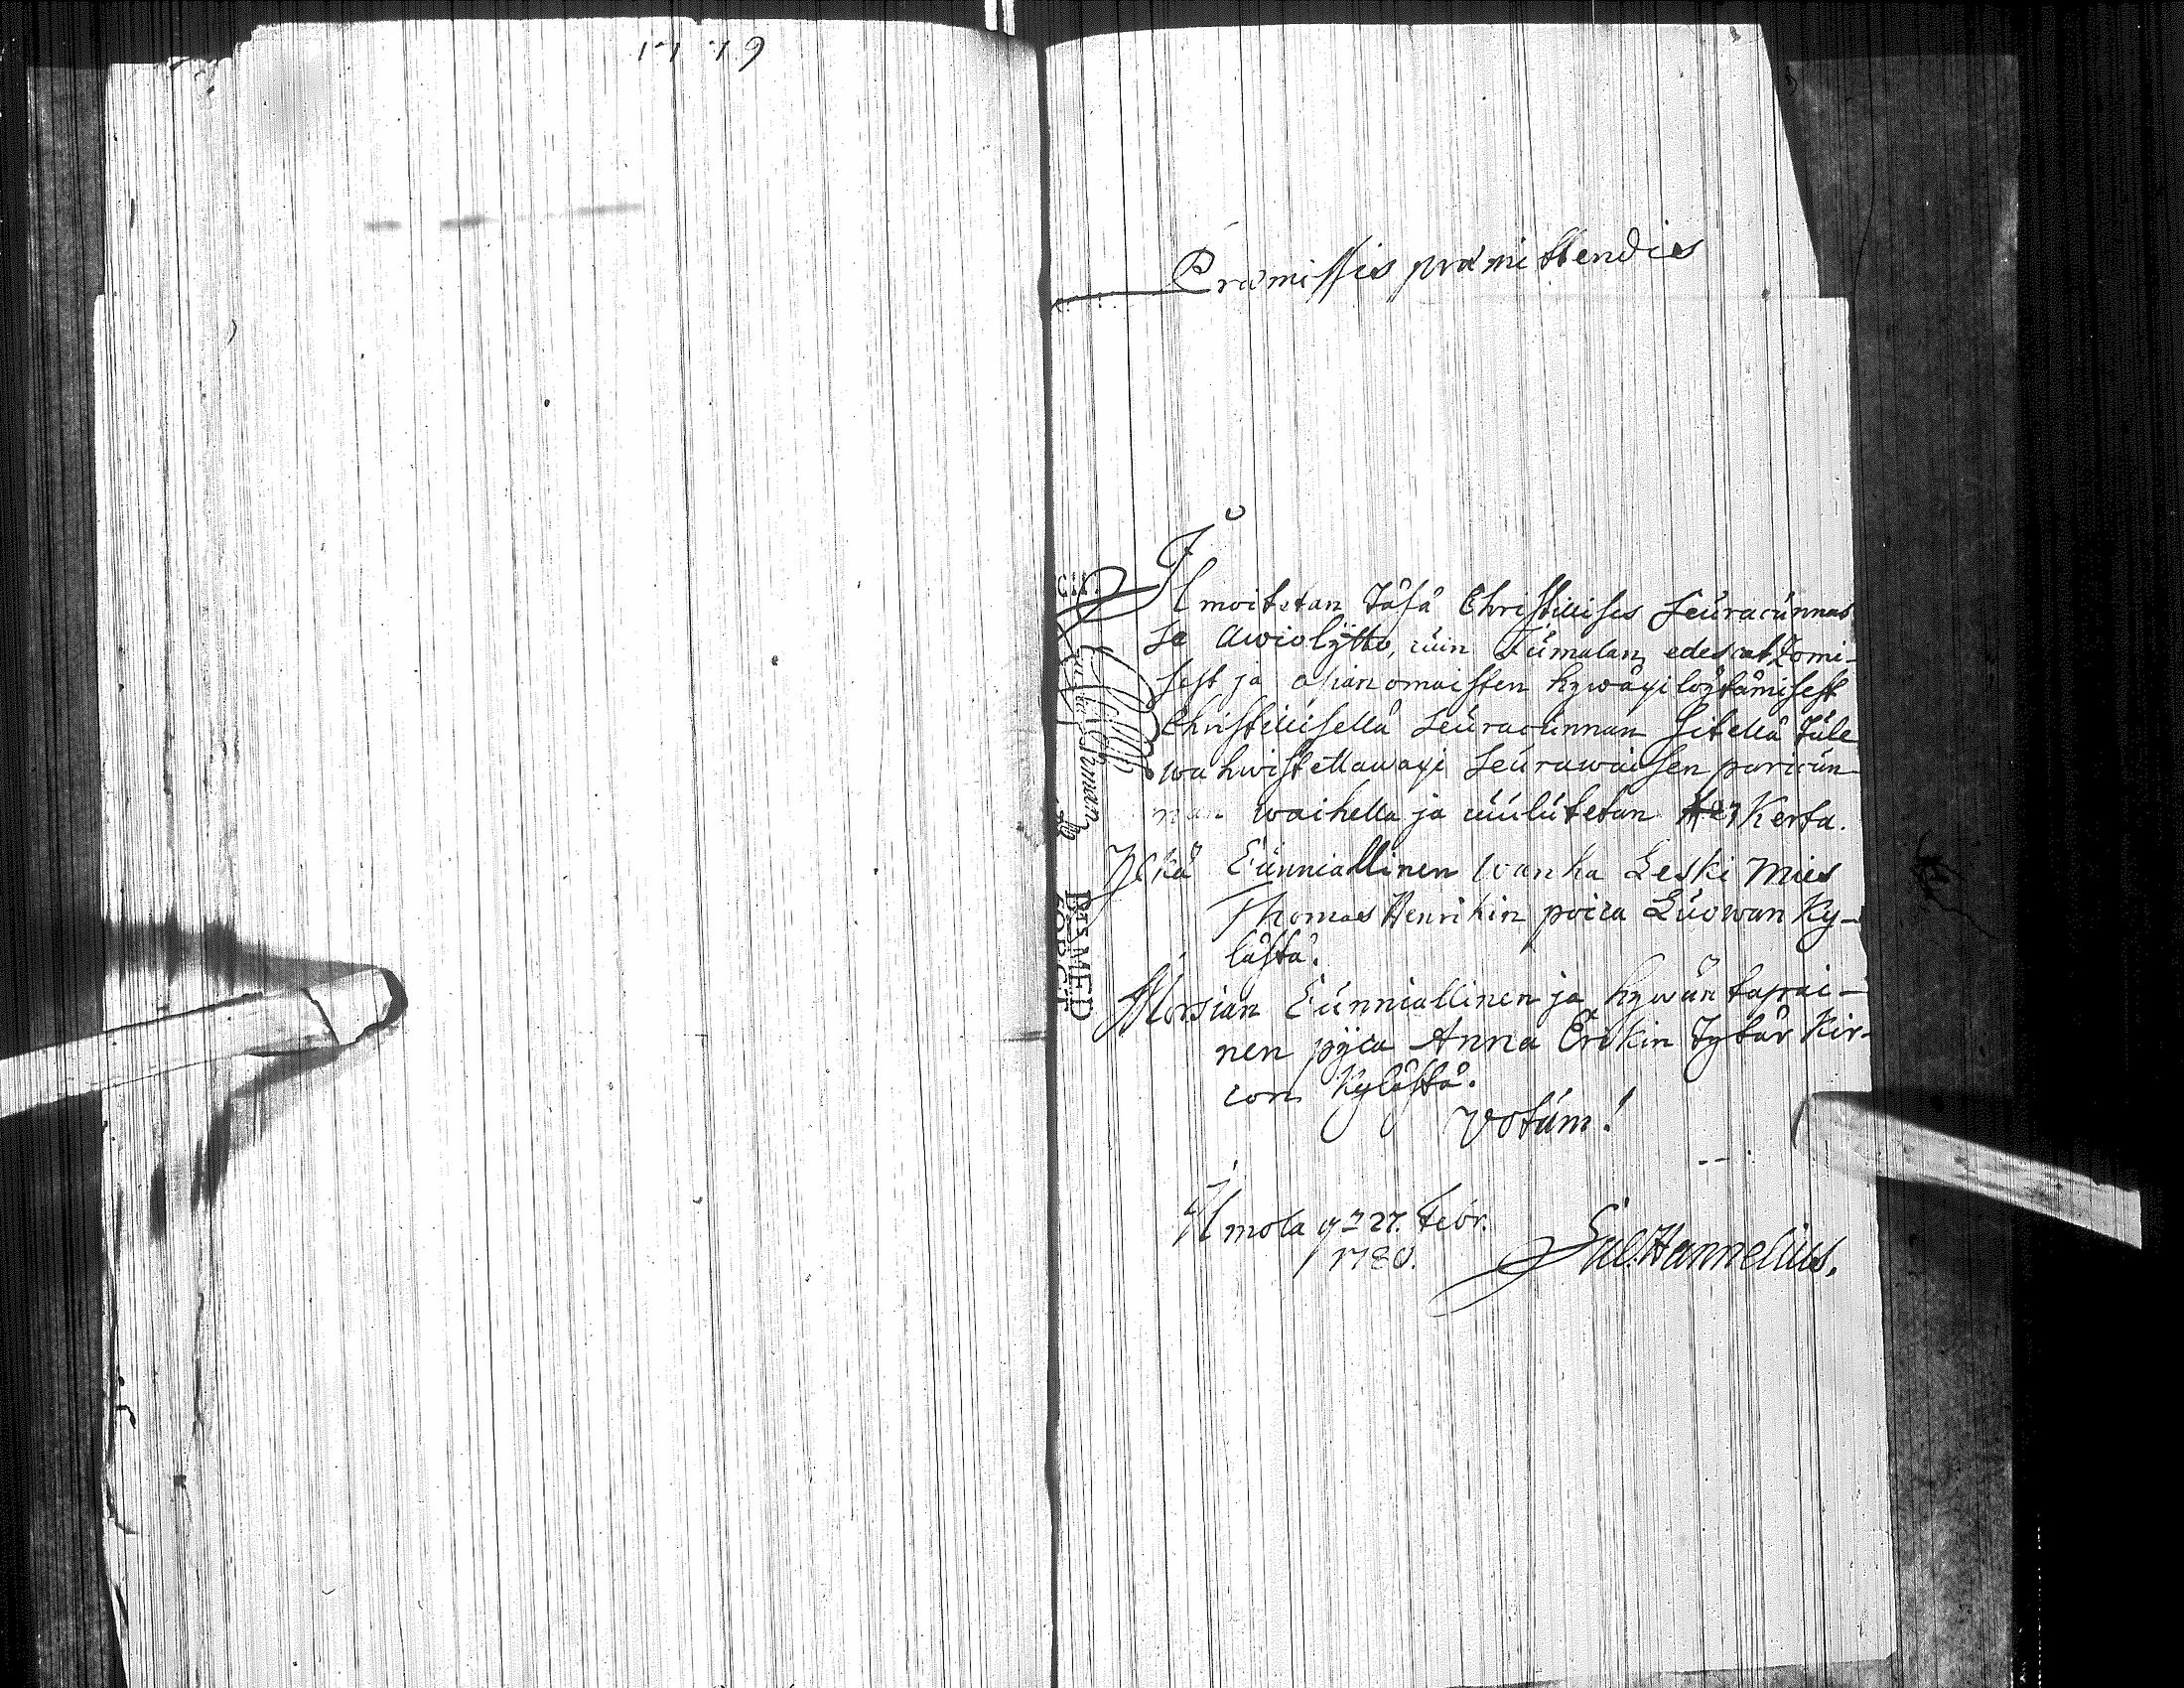 1779
Præmissis præmittendis
Ilmoitetan Täsä Christillises Seuracunnas
se Awiolijtto, cuin Jumalan edescatzomi-
sest ja asianomaisten hywäxi löytämisest
Christillisellä Seuracunnan Sitellä Tule
wahwistettawaxi Seurawaisen paricun-
nan waihella ja cuulutetan Kerta.
Ylkä Cunniallinen wanha Leski Mies
Thomas Henrikin poica Luowan Ky-
lästä.
Morsian Cunniallinen ja hywän tapai-
nen pijca Anna Erikin Tytär Kir-
con Kylästä.
Votum!
Ilmola 27. Febr.
1780. Hannelius.